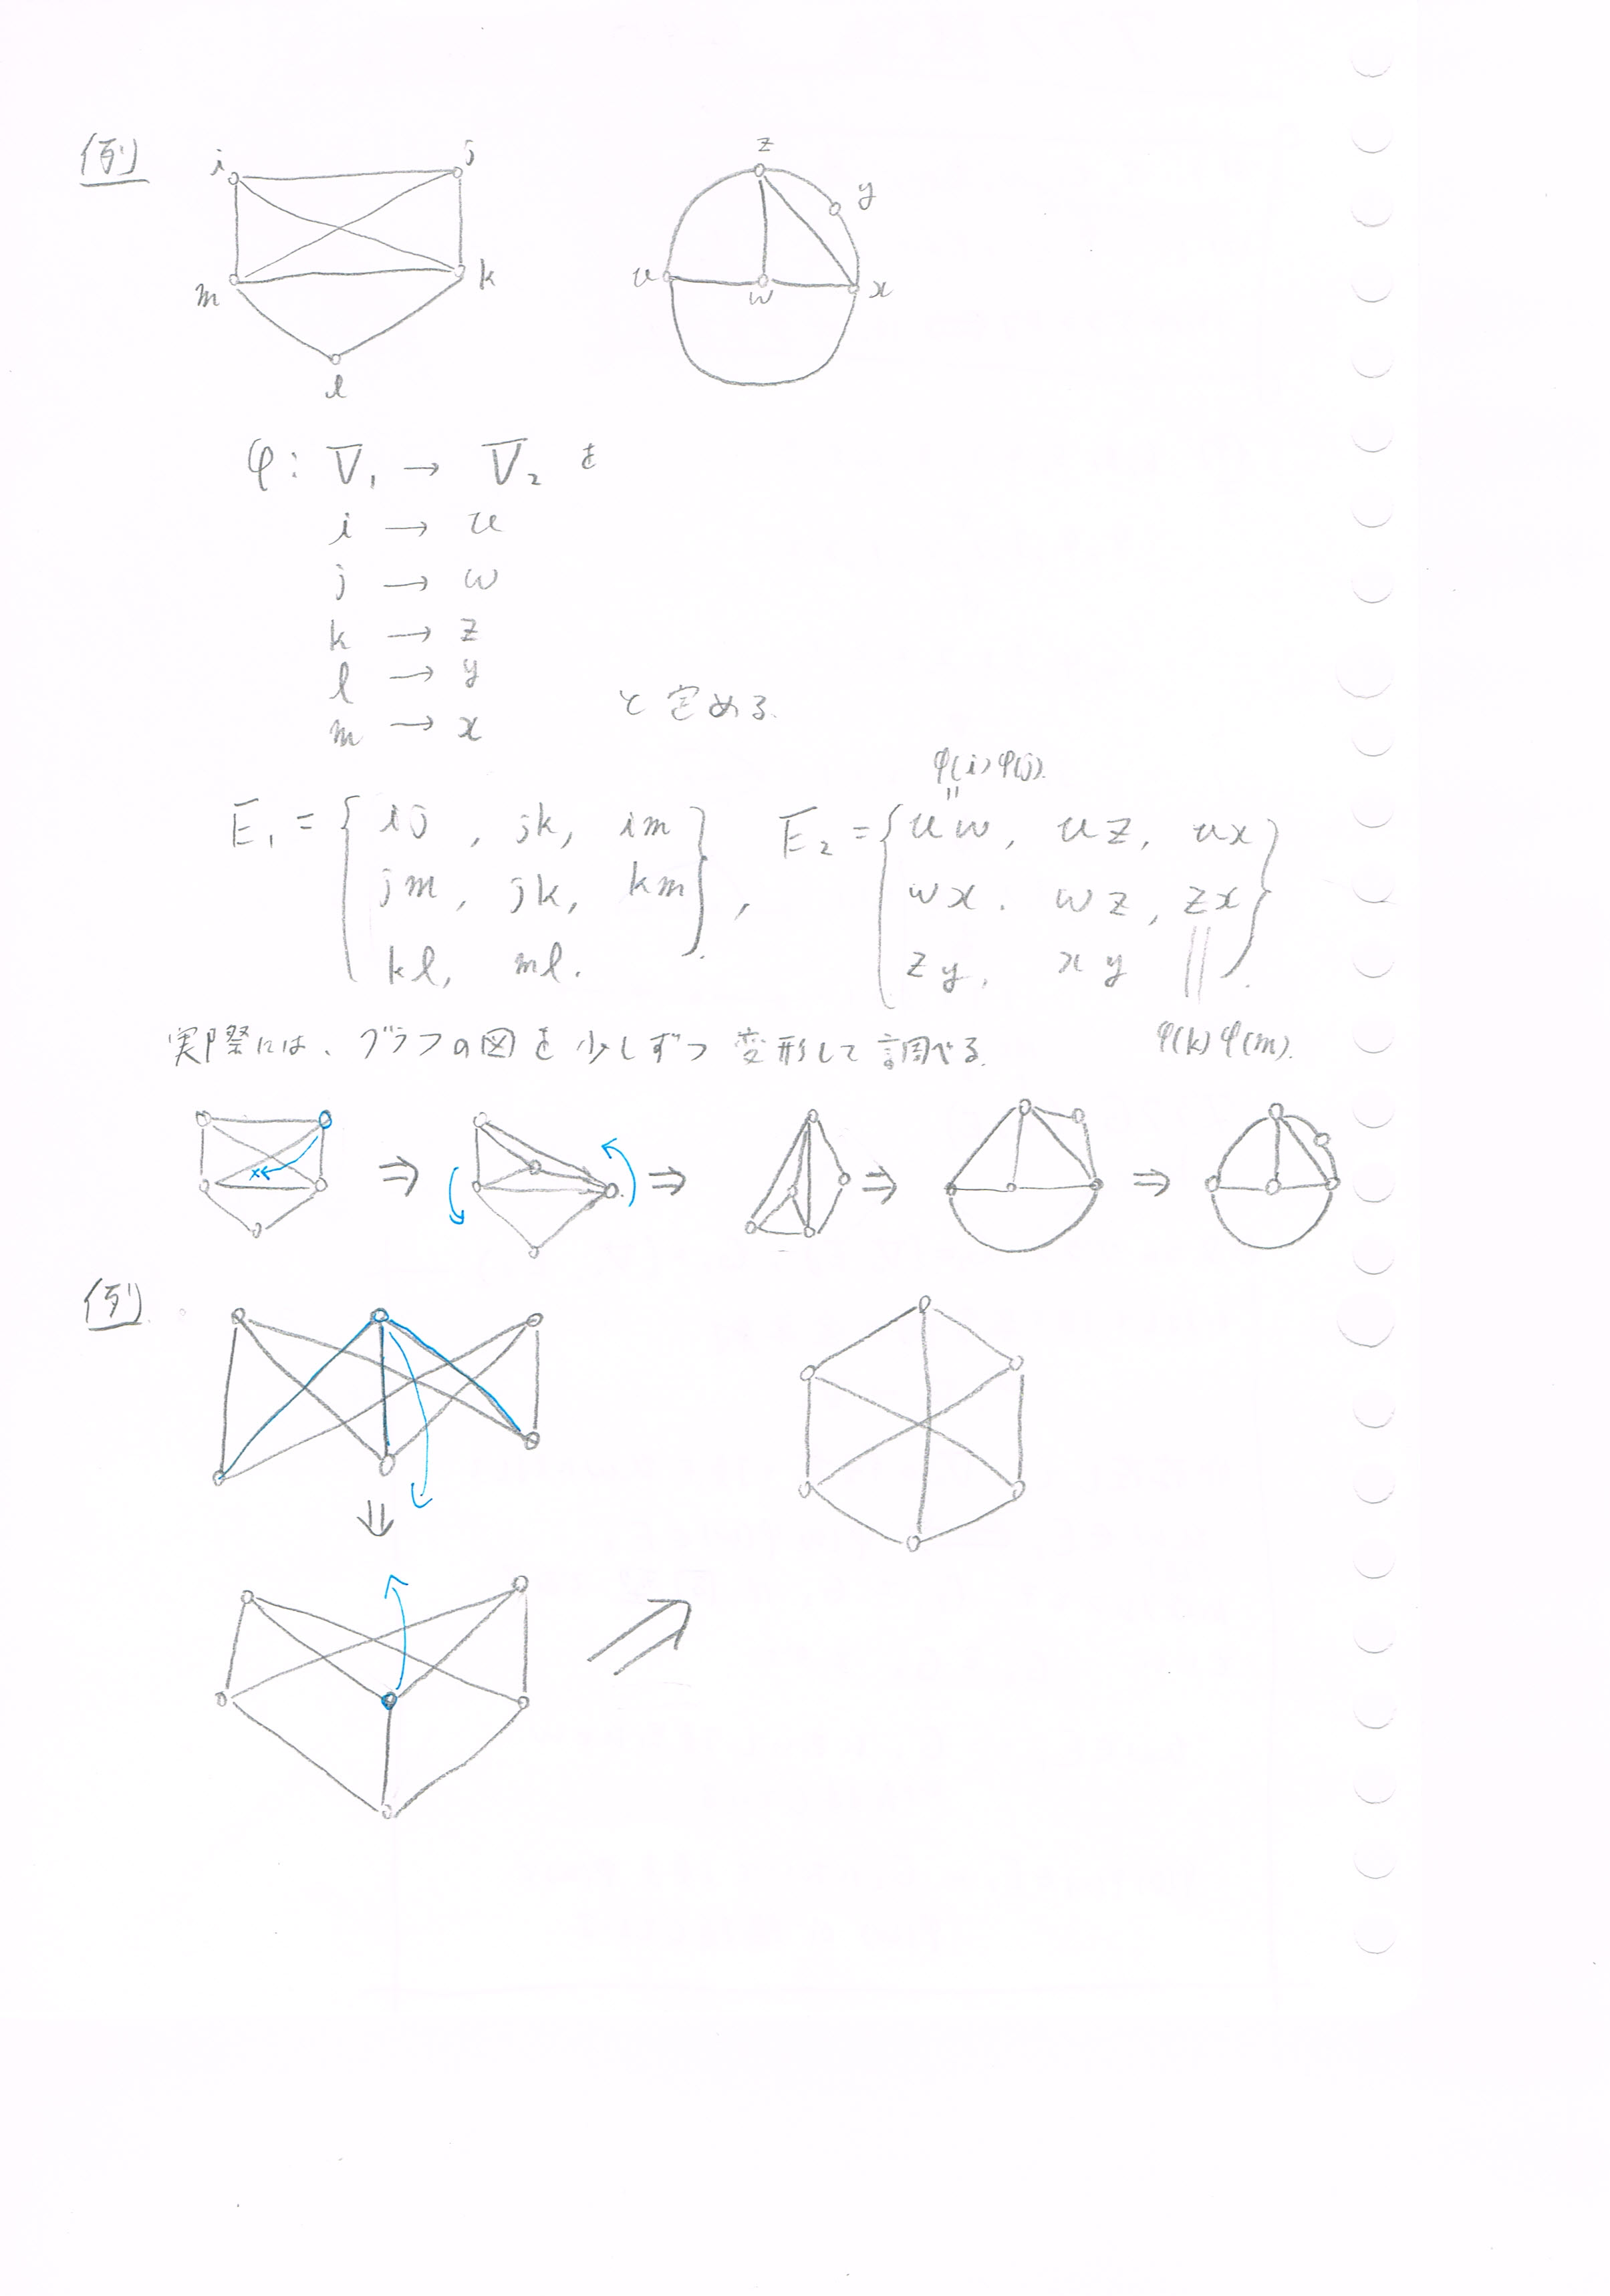 例
i j
m k
l
z
y
u w x
φ: V₁ → V₂ を
i → u
j → w
k → z
l → y
m → x
と定める.
φ(i)φ(j).
E₁ = { ij, jk, im
jm, jk, km
kl, ml. },
E₂ = { uw, uz, ux
wx. wz, zx
zy, xy }.
φ(k)φ(m).
実際には、グラフの図を少しずつ変形して調べる.
⇒ ⇒ ⇒ ⇒
例